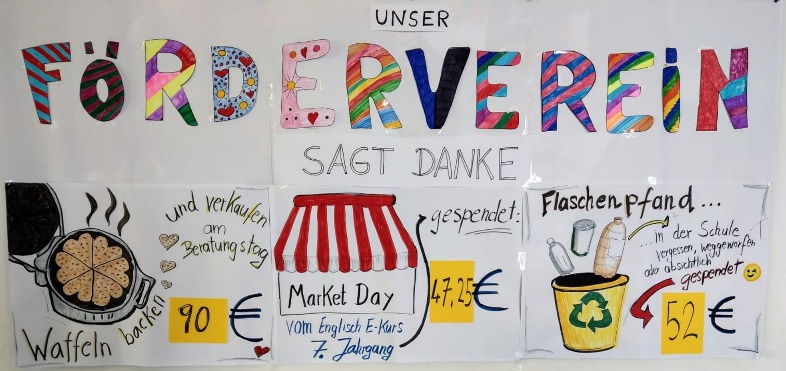 UNSER
FÖRDERVEREIN
SAGT DANKE
Waffeln backen
und verkaufen
am
Beratungstag
90 €
Market Day
vom Englisch E-Kurs
7. Jahrgang
gespendet:
47,25 €
Flaschenpfand...
...in der Schule
vergessen, weggeworfen
oder absichtlich
gespendet
52 €